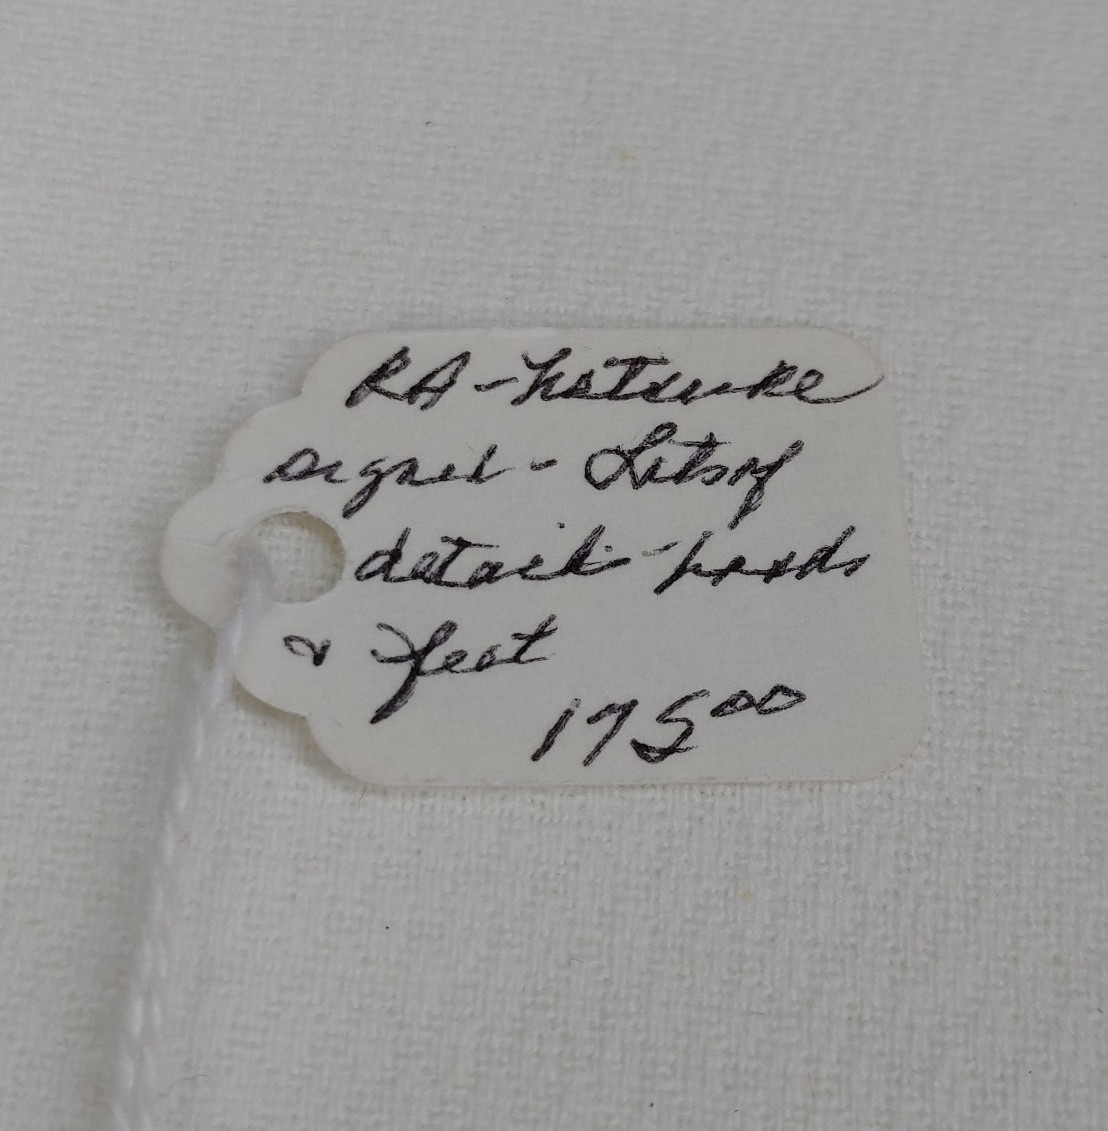 RA - Netsuke
signed - Lots of
detail - hands
& feet
175⁰⁰